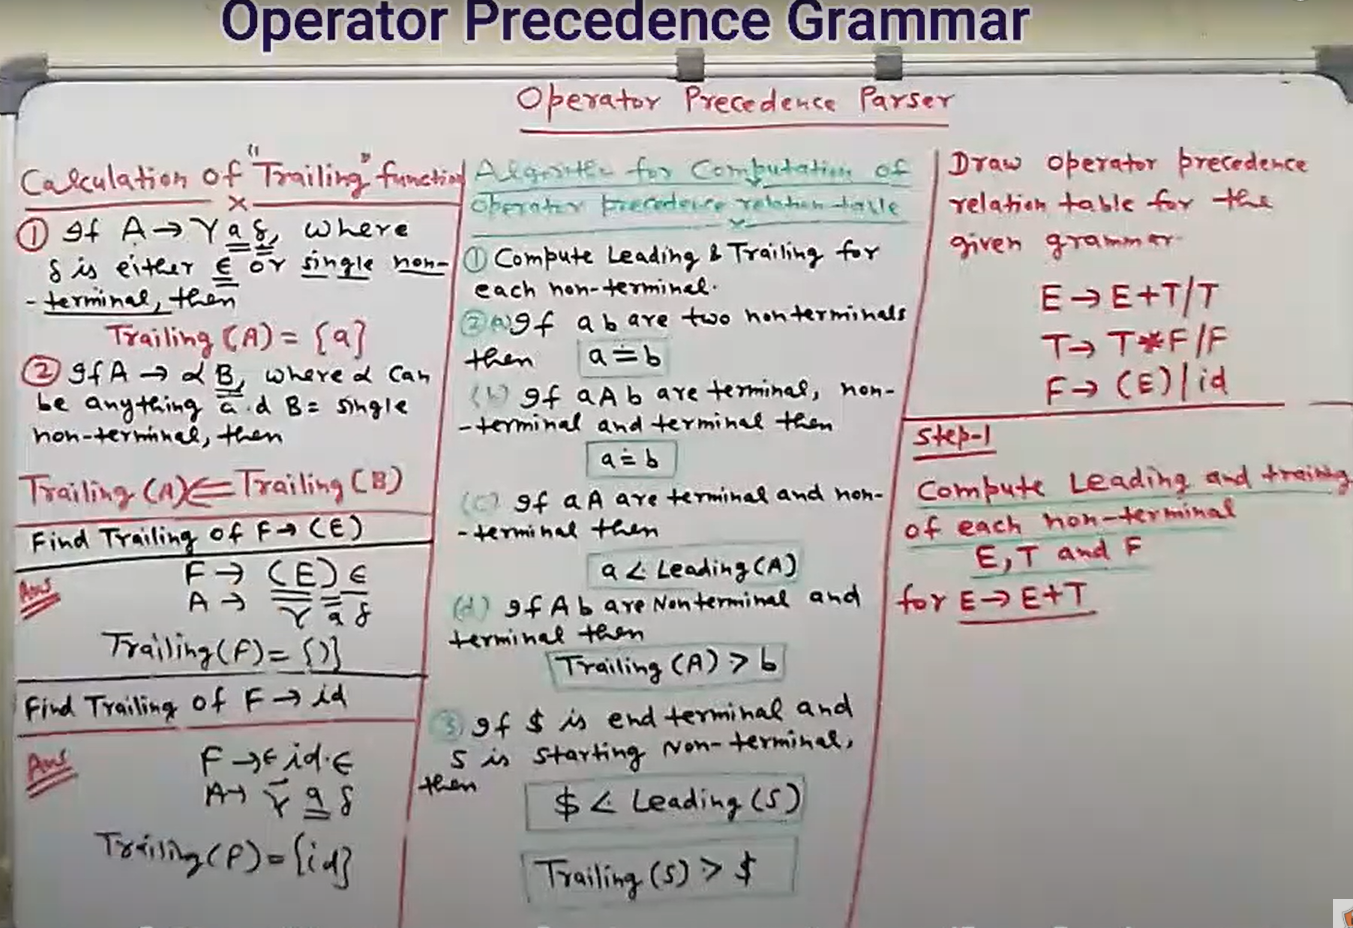 Operator Precedence Grammar
Operator Precedence Parser
Calculation of "Trailing" function
① If A → γ a δ, where
δ is either ϵ or single non-
- terminal, then
Trailing (A) = {a}
② If A → α B, where α can
be anything a.d B = single
non-terminal, then
Trailing (A) ⋐ Trailing (B)
Find Trailing of F → (E)
Ans
F → (E) ϵ
A → γ a δ
Trailing (F) = {)}
Find Trailing of F → id
Ans
F → ϵ id.ϵ
A → γ a δ
Trailing (F) = {id}
Algorithm for Computation of
operator precedence relation table
① Compute Leading & Trailing for
each non-terminal.
② (a) If a b are two nonterminals
then a ≐ b
(b) If a A b are terminal, non-
- terminal and terminal then
a ≐ b
(c) If a A are terminal and non-
- terminal then
a <· Leading (A)
(d) If A b are Nonterminal and
terminal then
Trailing (A) ·> b
③ If $ is end terminal and
S is starting Non-terminal,
then
$ <· Leading (S)
Trailing (S) ·> $
Draw operator precedence
relation table for the
given grammar.
E → E+T/T
T → T*F/F
F → (E)|id
Step-1
Compute Leading and traing
of each non-terminal
E, T and F
for E → E+T